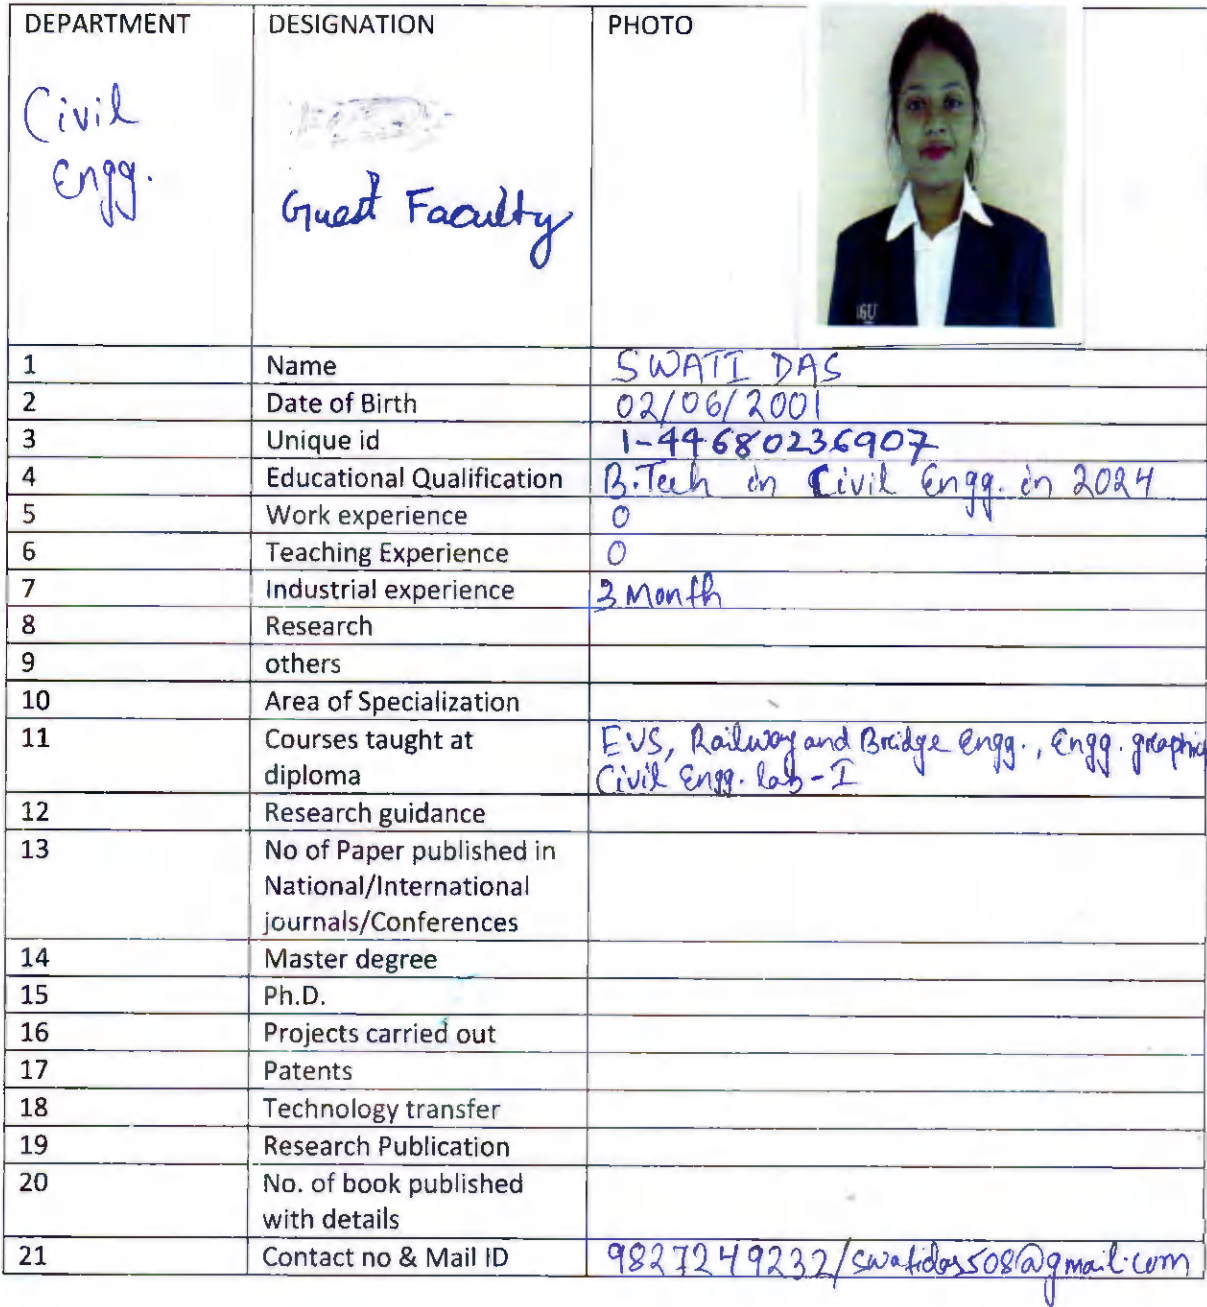 DEPARTMENT DESIGNATION PHOTO
Civil
Engg.
Guest Faculty
IGU
1 Name SWATI DAS
2 Date of Birth 02/06/2001
3 Unique id 1-44680236907
4 Educational Qualification B.Tech in Civil Engg. in 2024
5 Work experience 0
6 Teaching Experience 0
7 Industrial experience 3 Month
8 Research
9 others
10 Area of Specialization
11 Courses taught at EVS, Railway and Bridge Engg., Engg. graphic
diploma Civil Engg. lab-I
12 Research guidance
13 No of Paper published in
National/International
journals/Conferences
14 Master degree
15 Ph.D.
16 Projects carried out
17 Patents
18 Technology transfer
19 Research Publication
20 No. of book published
with details
21 Contact no & Mail ID 9827249232/swatidas508@gmail.com